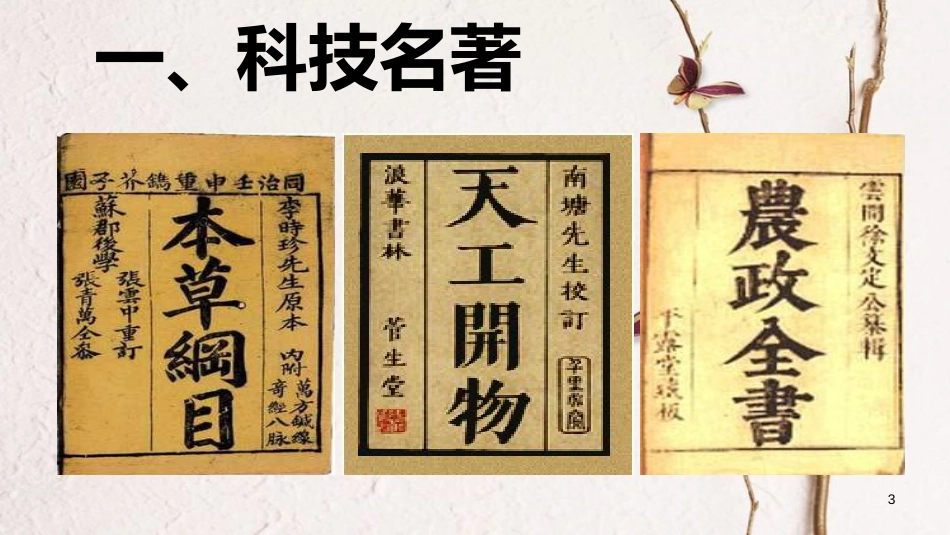 一、科技名著
同治壬申重鐫芥子園
李時珍先生原本
內附萬方鍼線
奇經八脉
本草綱目
蘇郡後學
張雲中重訂
張青萬仝參
南塘先生校訂
天工開物
浪華書林 菅生堂
雲間徐文定公纂輯
農政全書
平露堂
3